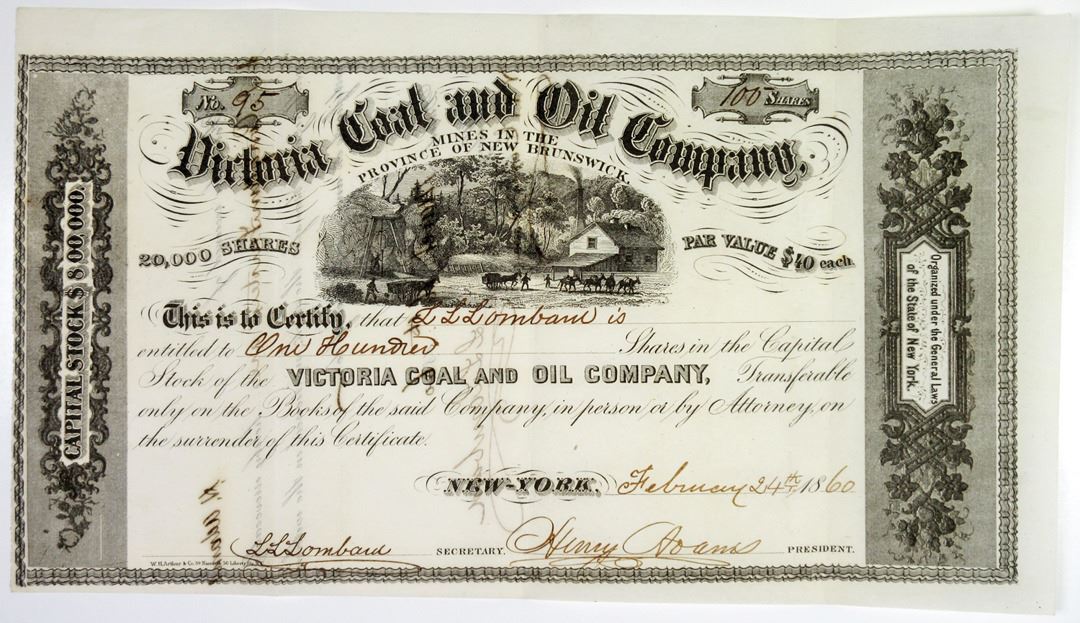 No. 95
100 Shares
Victoria Coal and Oil Company,
MINES IN THE
PROVINCE OF NEW BRUNSWICK.
20,000 SHARES
PAR VALUE $40 each.
CAPITAL STOCK $800000.
Organized under the General Laws
of the State of New York.
This is to Certify, that L L Lombard is
entitled to One Hundred Shares in the Capital
Stock of the VICTORIA COAL AND OIL COMPANY, Transferable
only on the Books of the said Company, in person or by Attorney, on
the surrender of this Certificate.
NEW-YORK, February 24th 1860
L L Lombard SECRETARY. Henry Adams PRESIDENT.
W.H. Arthur & Co. 39 Nassau & 56 Liberty